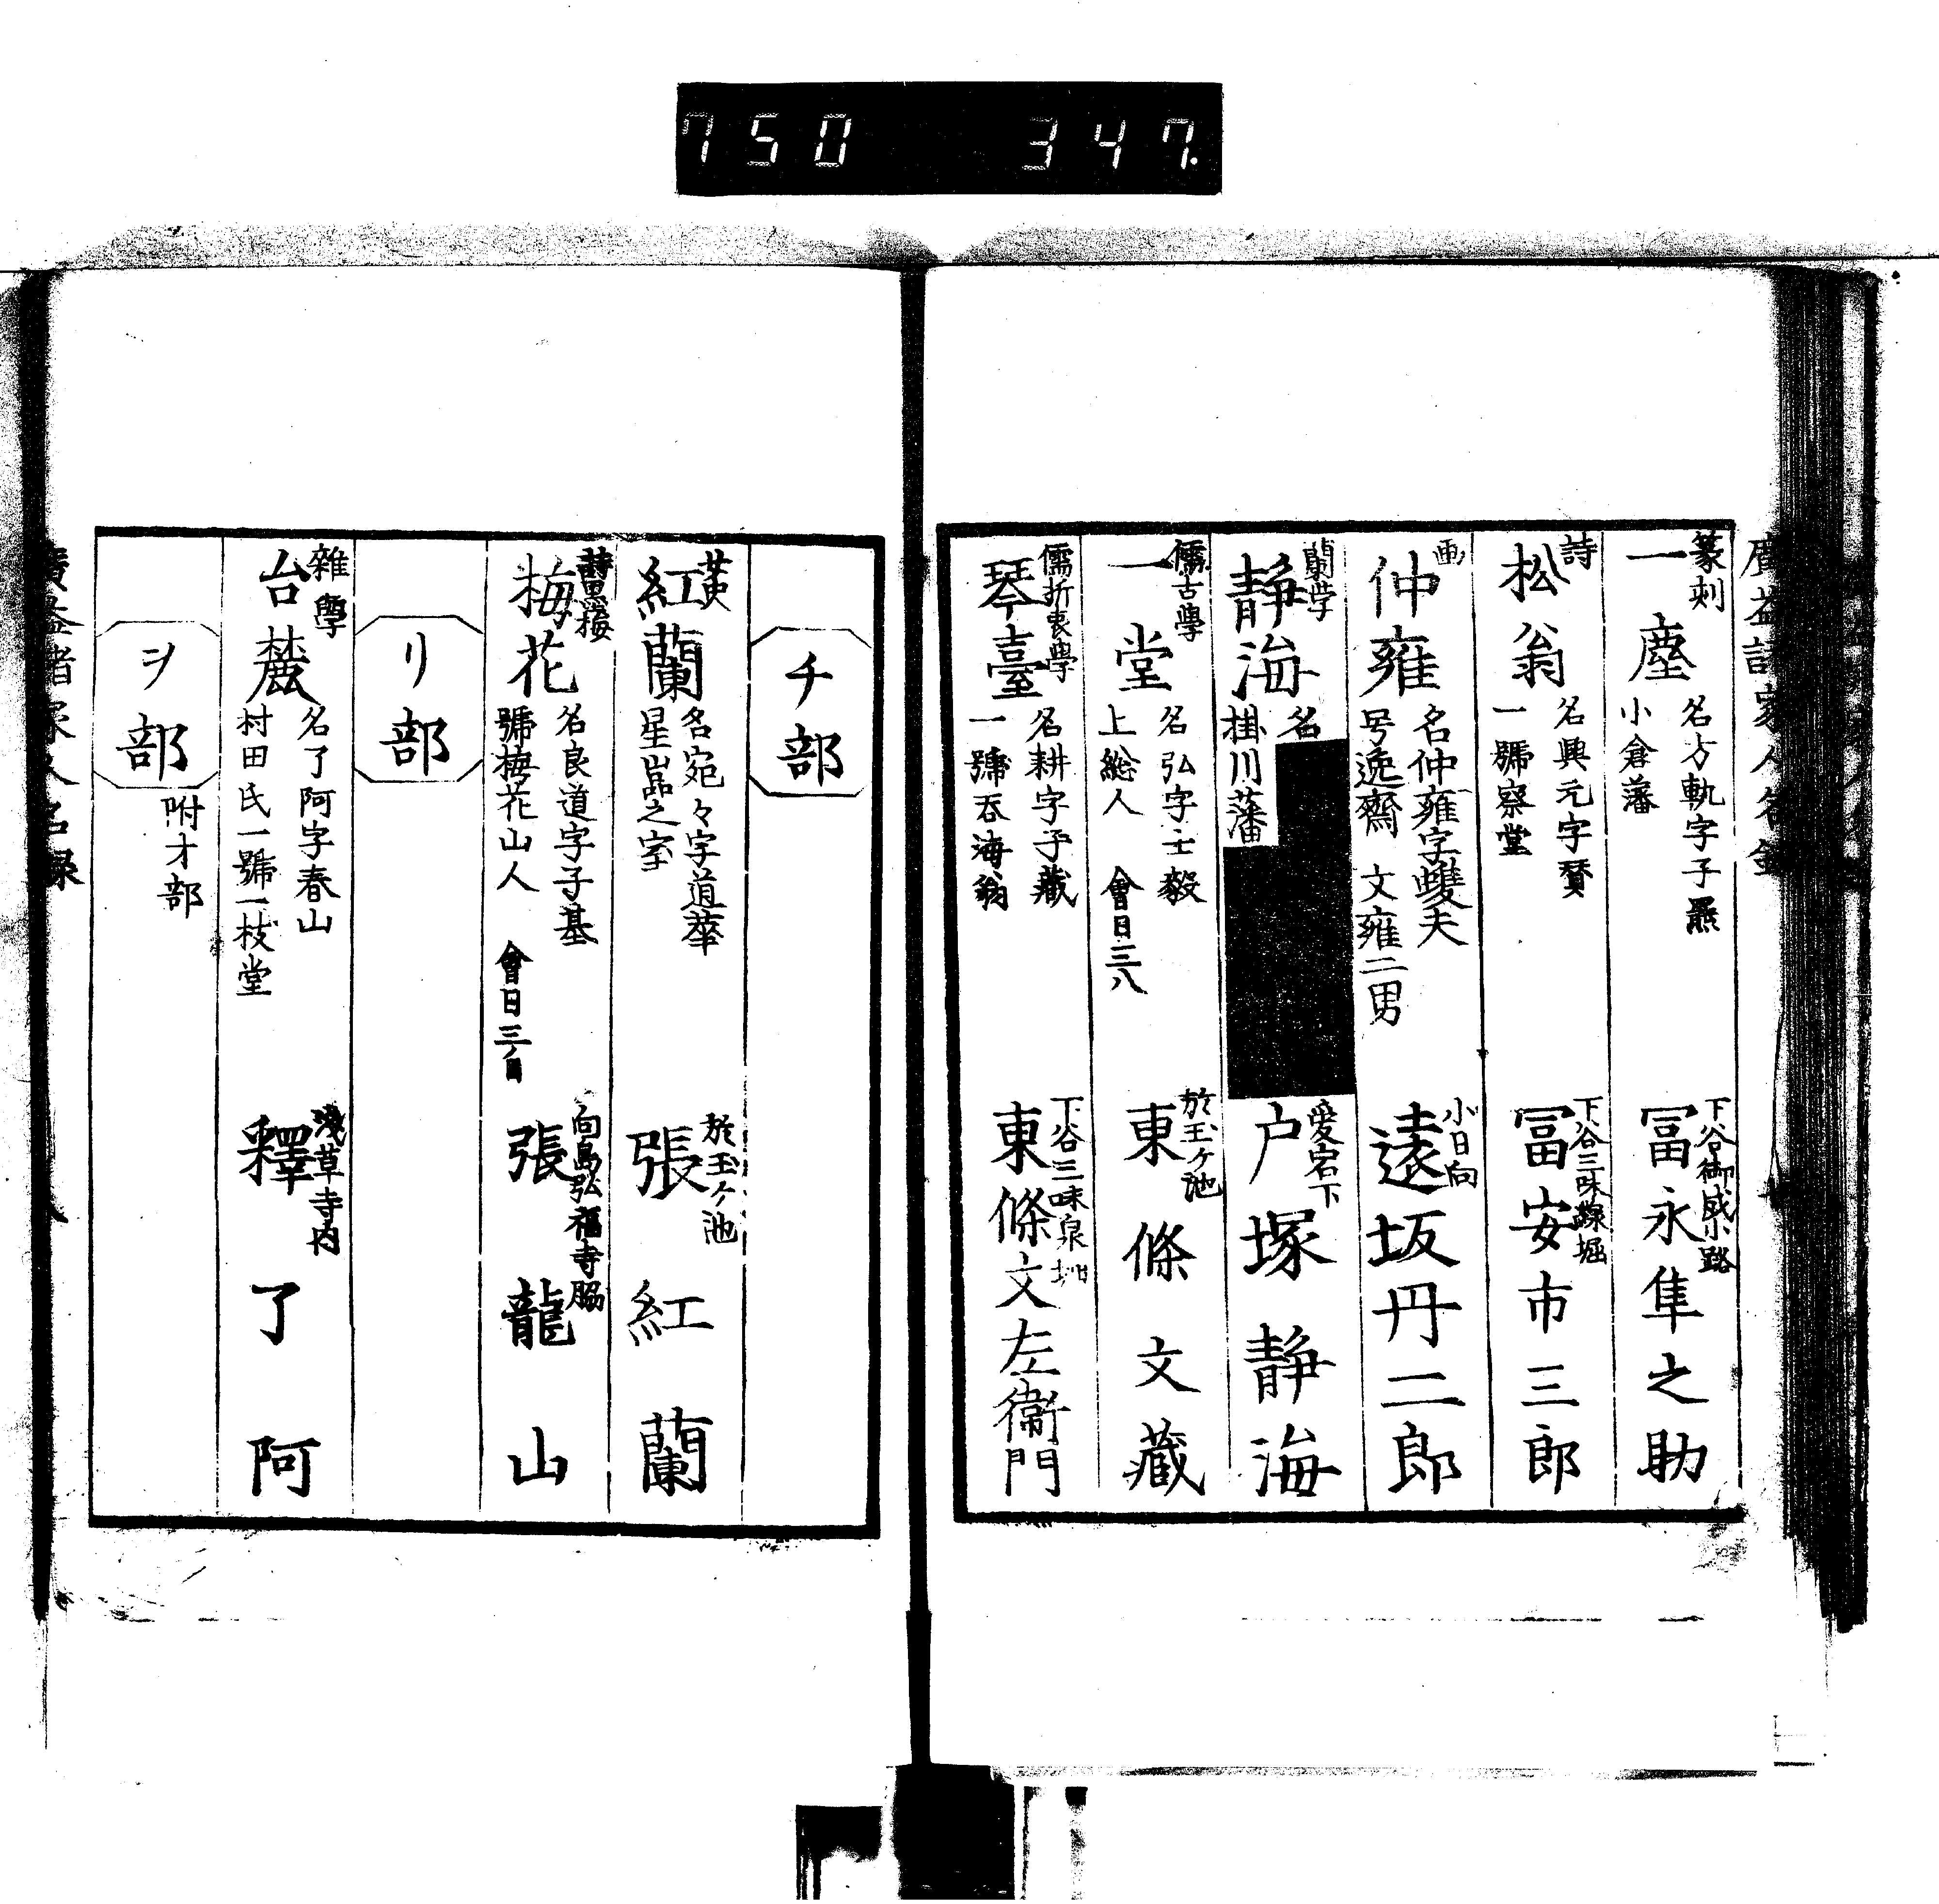 750 347
篆刻
一塵
名方軌字子
小倉藩
下谷御成小路
冨永隼之助
詩
松翁
名興元字賛
一號察堂
下谷三味線堀
冨安市三郎
画
仲雍
名仲雍字雙夫
号逸齋 文雍二男
小日向
遠坂丹二郎
蘭学
静海
名
掛川藩
愛宕下
戸塚静海
儒古學
一堂
名弘字士毅
上総人 會日三八
於玉ヶ池
東條文藏
儒折衷學
琴臺
名耕字子藏
一號吞海翁
下谷三味泉堀
東條文左衞門
チ部
紅蘭
名宛々字道華
星巖之室
於玉ヶ池
張紅蘭
梅花
名良道字子基
號梅花山人 會日三ノ日
向島弘福寺脇
張龍山
リ部
雜學
台麓
名了阿字春山
村田氏一號一枝堂
淺草寺内
釋了阿
ヲ部
附オ部
廣益諸家人名録